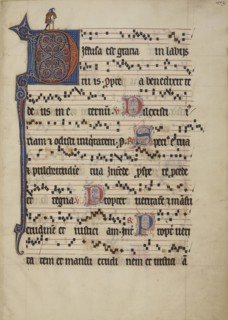 Diffusa est gratia in labijs
tu is ppte a benedixit te
de us in e ternum V Dilexisti i
ticiam et odisti iniquitatem Specie tua
pulcritudine tua intende pspe re pcede
et regna V Propter veritatem et mansu
etudine et iustici am Propter veri
ta tem et mansu etudi nem et iusticia